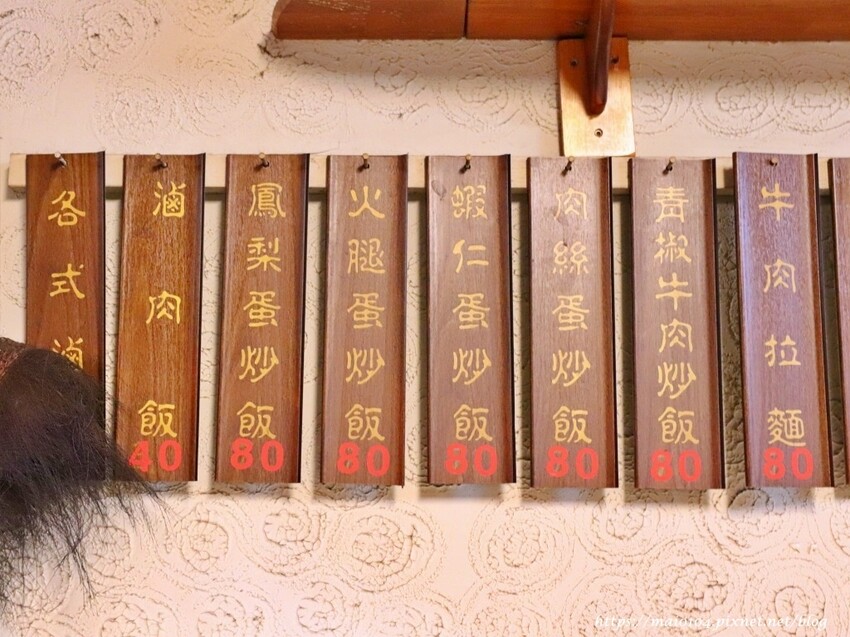 各式滷
滷肉飯
40
鳳梨蛋炒飯
80
火腿蛋炒飯
80
蝦仁蛋炒飯
80
肉絲蛋炒飯
80
青椒牛肉炒飯
80
牛肉拉麵
80
https://mai0104.pixnet.net/blog